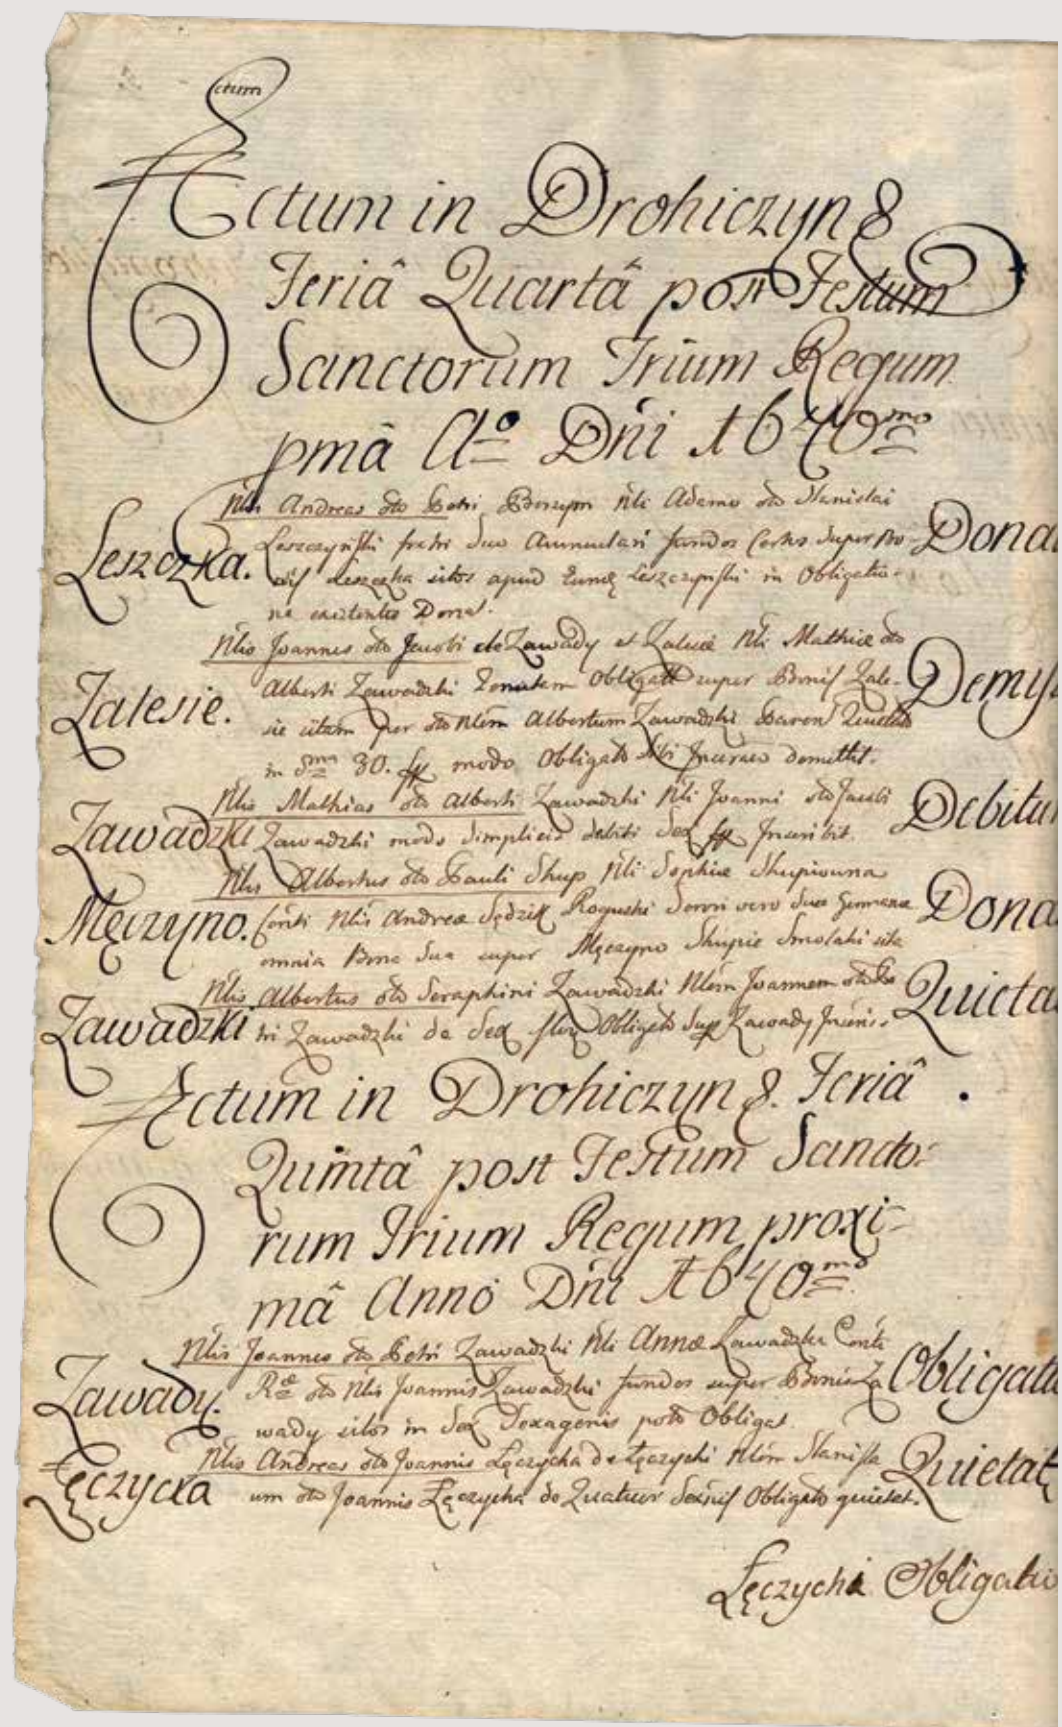 ctum
Actum in Drohiczyn &
Feriâ Quartâ post Festum
Sanctorum Trium Regum
pmâ Aº Dni 1640mo
Nlis Andreas olo Petri Borzym Nli Adamo olo Stanislai
Leszczka. Leszczyński fratri suo Ammulari fundos Certos super Bo- Dona
nis Leszczka sitos apud Leszczyński in Obligatio-
ne existentes Donat.
Nlis Joannes olo Jacobi de Zawady et Zalesie Nli Mathiæ olo
Zalesie. Alberti Zawadzki Obligatt super Bonis Zale- Demis
sie sitam per olo Nlem Albertum Zawadzki
in Sma 30. modo Obligato sibi demittit.
Nlis Mathias olo Alberti Zawadzki Nli Joanni olo Jacobi
Zawadzki Zawadzki modo simplicis debiti Sex Inscribit. Debitu
Nlis Albertus olo Pauli Skup Nli Sophiæ Skupiowna
Męczyno. Conti Nlis Andreæ Sędzik Roguski Sorori vero suæ Germanæ Dona
omnia Bona sua super Męczyno Skupie Smolaki sita
Nlis Albertus olo Seraphini Zawadzki Nlem Joannem olo Pe Quieta
Zawadzki tri Zawadzki de Sex Obligato sup Zawady
Actum in Drohiczyn &. Feriâ .
Quintâ post Festum Sancto:
rum Trium Regum proxi-
mâ Anno Dni 1640mo
Nlis Joannes olo Petri Zawadzki Nli Annæ Zawadzka Conti
Zawady. Ræ olo Nlis Joannis Zawadzki fundos super Bonis Za Obligati
wady sitos in Sex Sexagenis Obligat.
Nlis Andreas olo Joannis Łęczycka de Łęczycki Nlem Stanisla
Łęczycka um olo Joannis Łęczycka de Quatuor Obligato quietat. Quietat
Łęczycka Obligatio